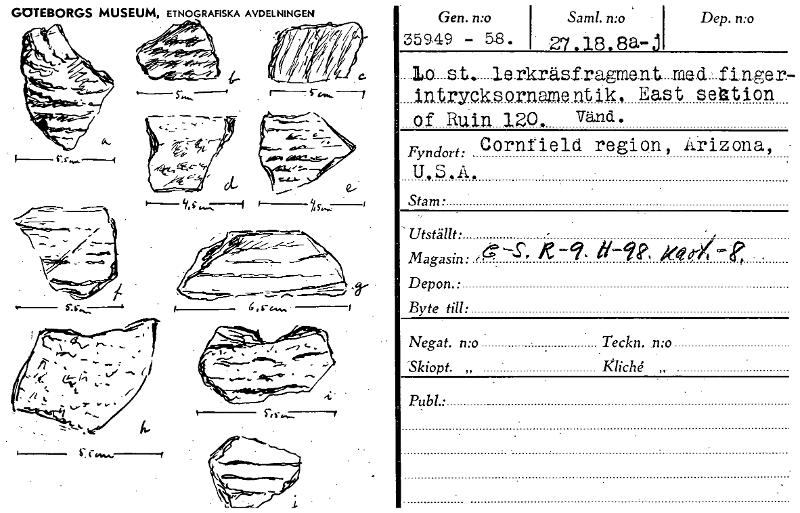 GÖTEBORGS MUSEUM, ETNOGRAFISKA AVDELNINGEN
a
5,5cm
b
5cm
c
5cm
d
4,5cm
e
4,5cm
f
5.5cm
g
6,5cm
h
5.5cm
i
5,5cm
j
Gen. n:o
Saml. n:o
Dep. n:o
35949 - 58.
27.18.8a-j
10 st. lerkräsfragment med finger-
intrycksornamentik. East sektion
of Ruin 120. Vänd.
Fyndort: Cornfield region, Arizona,
U.S.A.
Stam:
Utställt:
Magasin: C-S. R-9. H-98. kart.-8.
Depon.:
Byte till:
Negat. n:o
Teckn. n:o
Skiopt. „
Kliché „
Publ.: